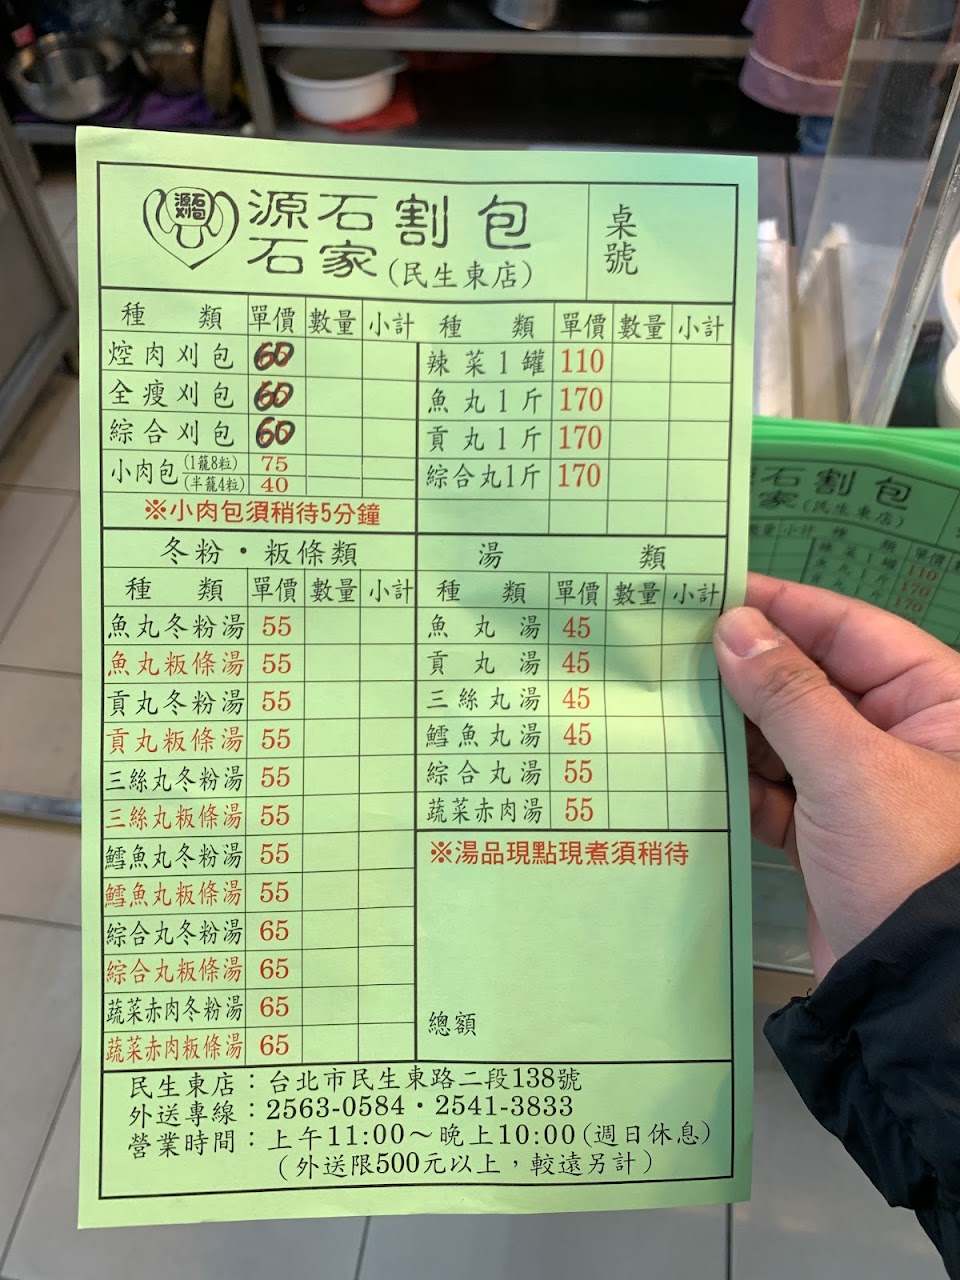 源石
刈包
源石割包
石家(民生東店)
桌號
種類 單價 數量 小計 種類 單價 數量 小計
焢肉刈包 60
全瘦刈包 60
綜合刈包 60
小肉包(1籠8粒) 75
(半籠4粒) 40
※小肉包須稍待5分鐘
辣菜1罐 110
魚丸1斤 170
貢丸1斤 170
綜合丸1斤 170
冬粉・粄條類
種類 單價 數量 小計
魚丸冬粉湯 55
魚丸粄條湯 55
貢丸冬粉湯 55
貢丸粄條湯 55
三絲丸冬粉湯 55
三絲丸粄條湯 55
鱈魚丸冬粉湯 55
鱈魚丸粄條湯 55
綜合丸冬粉湯 65
綜合丸粄條湯 65
蔬菜赤肉冬粉湯 65
蔬菜赤肉粄條湯 65
湯類
種類 單價 數量 小計
魚丸湯 45
貢丸湯 45
三絲丸湯 45
鱈魚丸湯 45
綜合丸湯 55
蔬菜赤肉湯 55
※湯品現點現煮須稍待
總額
民生東店：台北市民生東路二段138號
外送專線：2563-0584・2541-3833
營業時間：上午11:00～晚上10:00(週日休息)
(外送限500元以上，較遠另計)
石割包
家(民生東店)
小計 種類 單價
辣菜1罐 110
魚丸1斤 170
170